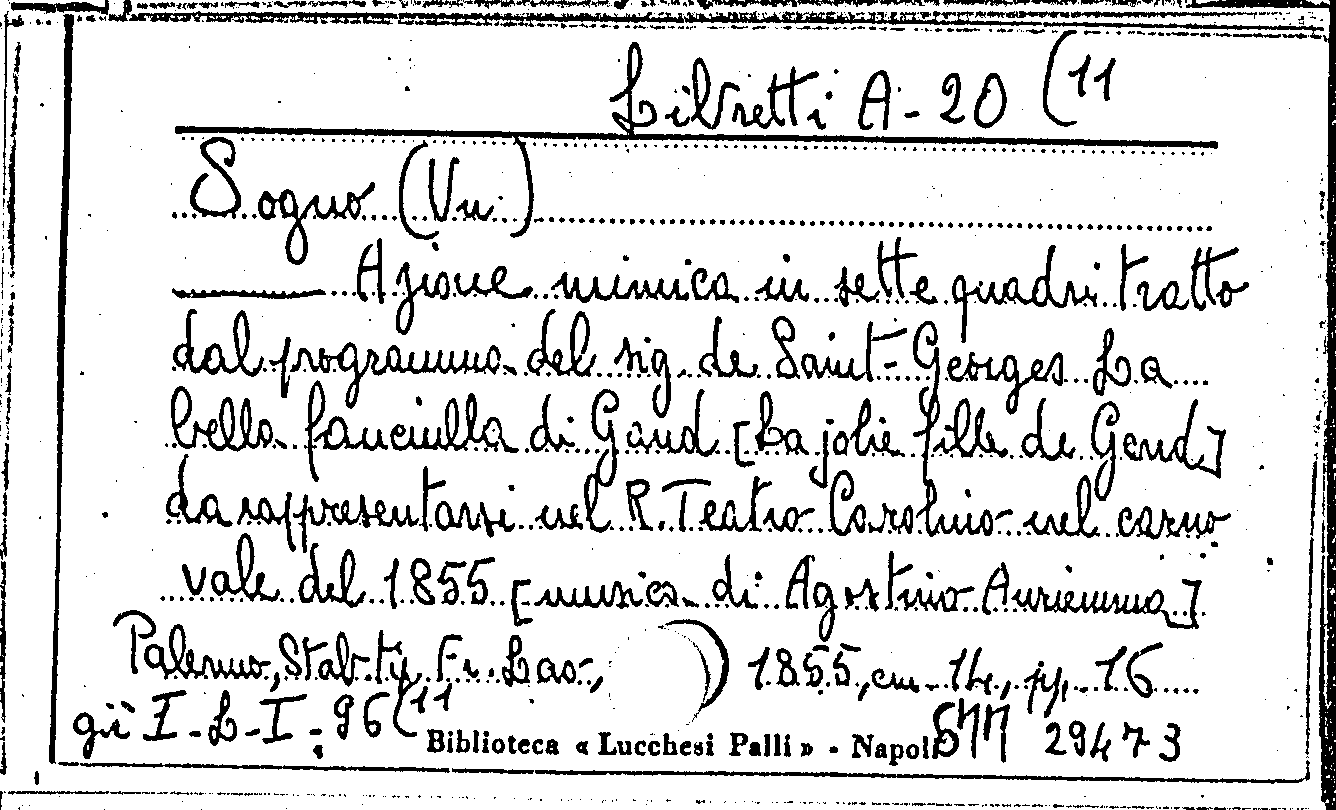 Libretti A-20 (11
Sogno (Un)
Azione mimica in sette quadri tratto
dal programma del sig. de Saint-Georges La
bella fanciulla di Gand [La jolie fille de Gand]
da rappresentarsi nel R. Teatro Carolino nel carno
vale del 1855 [musica di Agostino Auriemma]
Palermo, Stab. tip. Fr. Lao, 1855, cm. 14, pp. 16
già I-L-I-96 (11
Biblioteca « Lucchesi Palli » - Napoli
29473